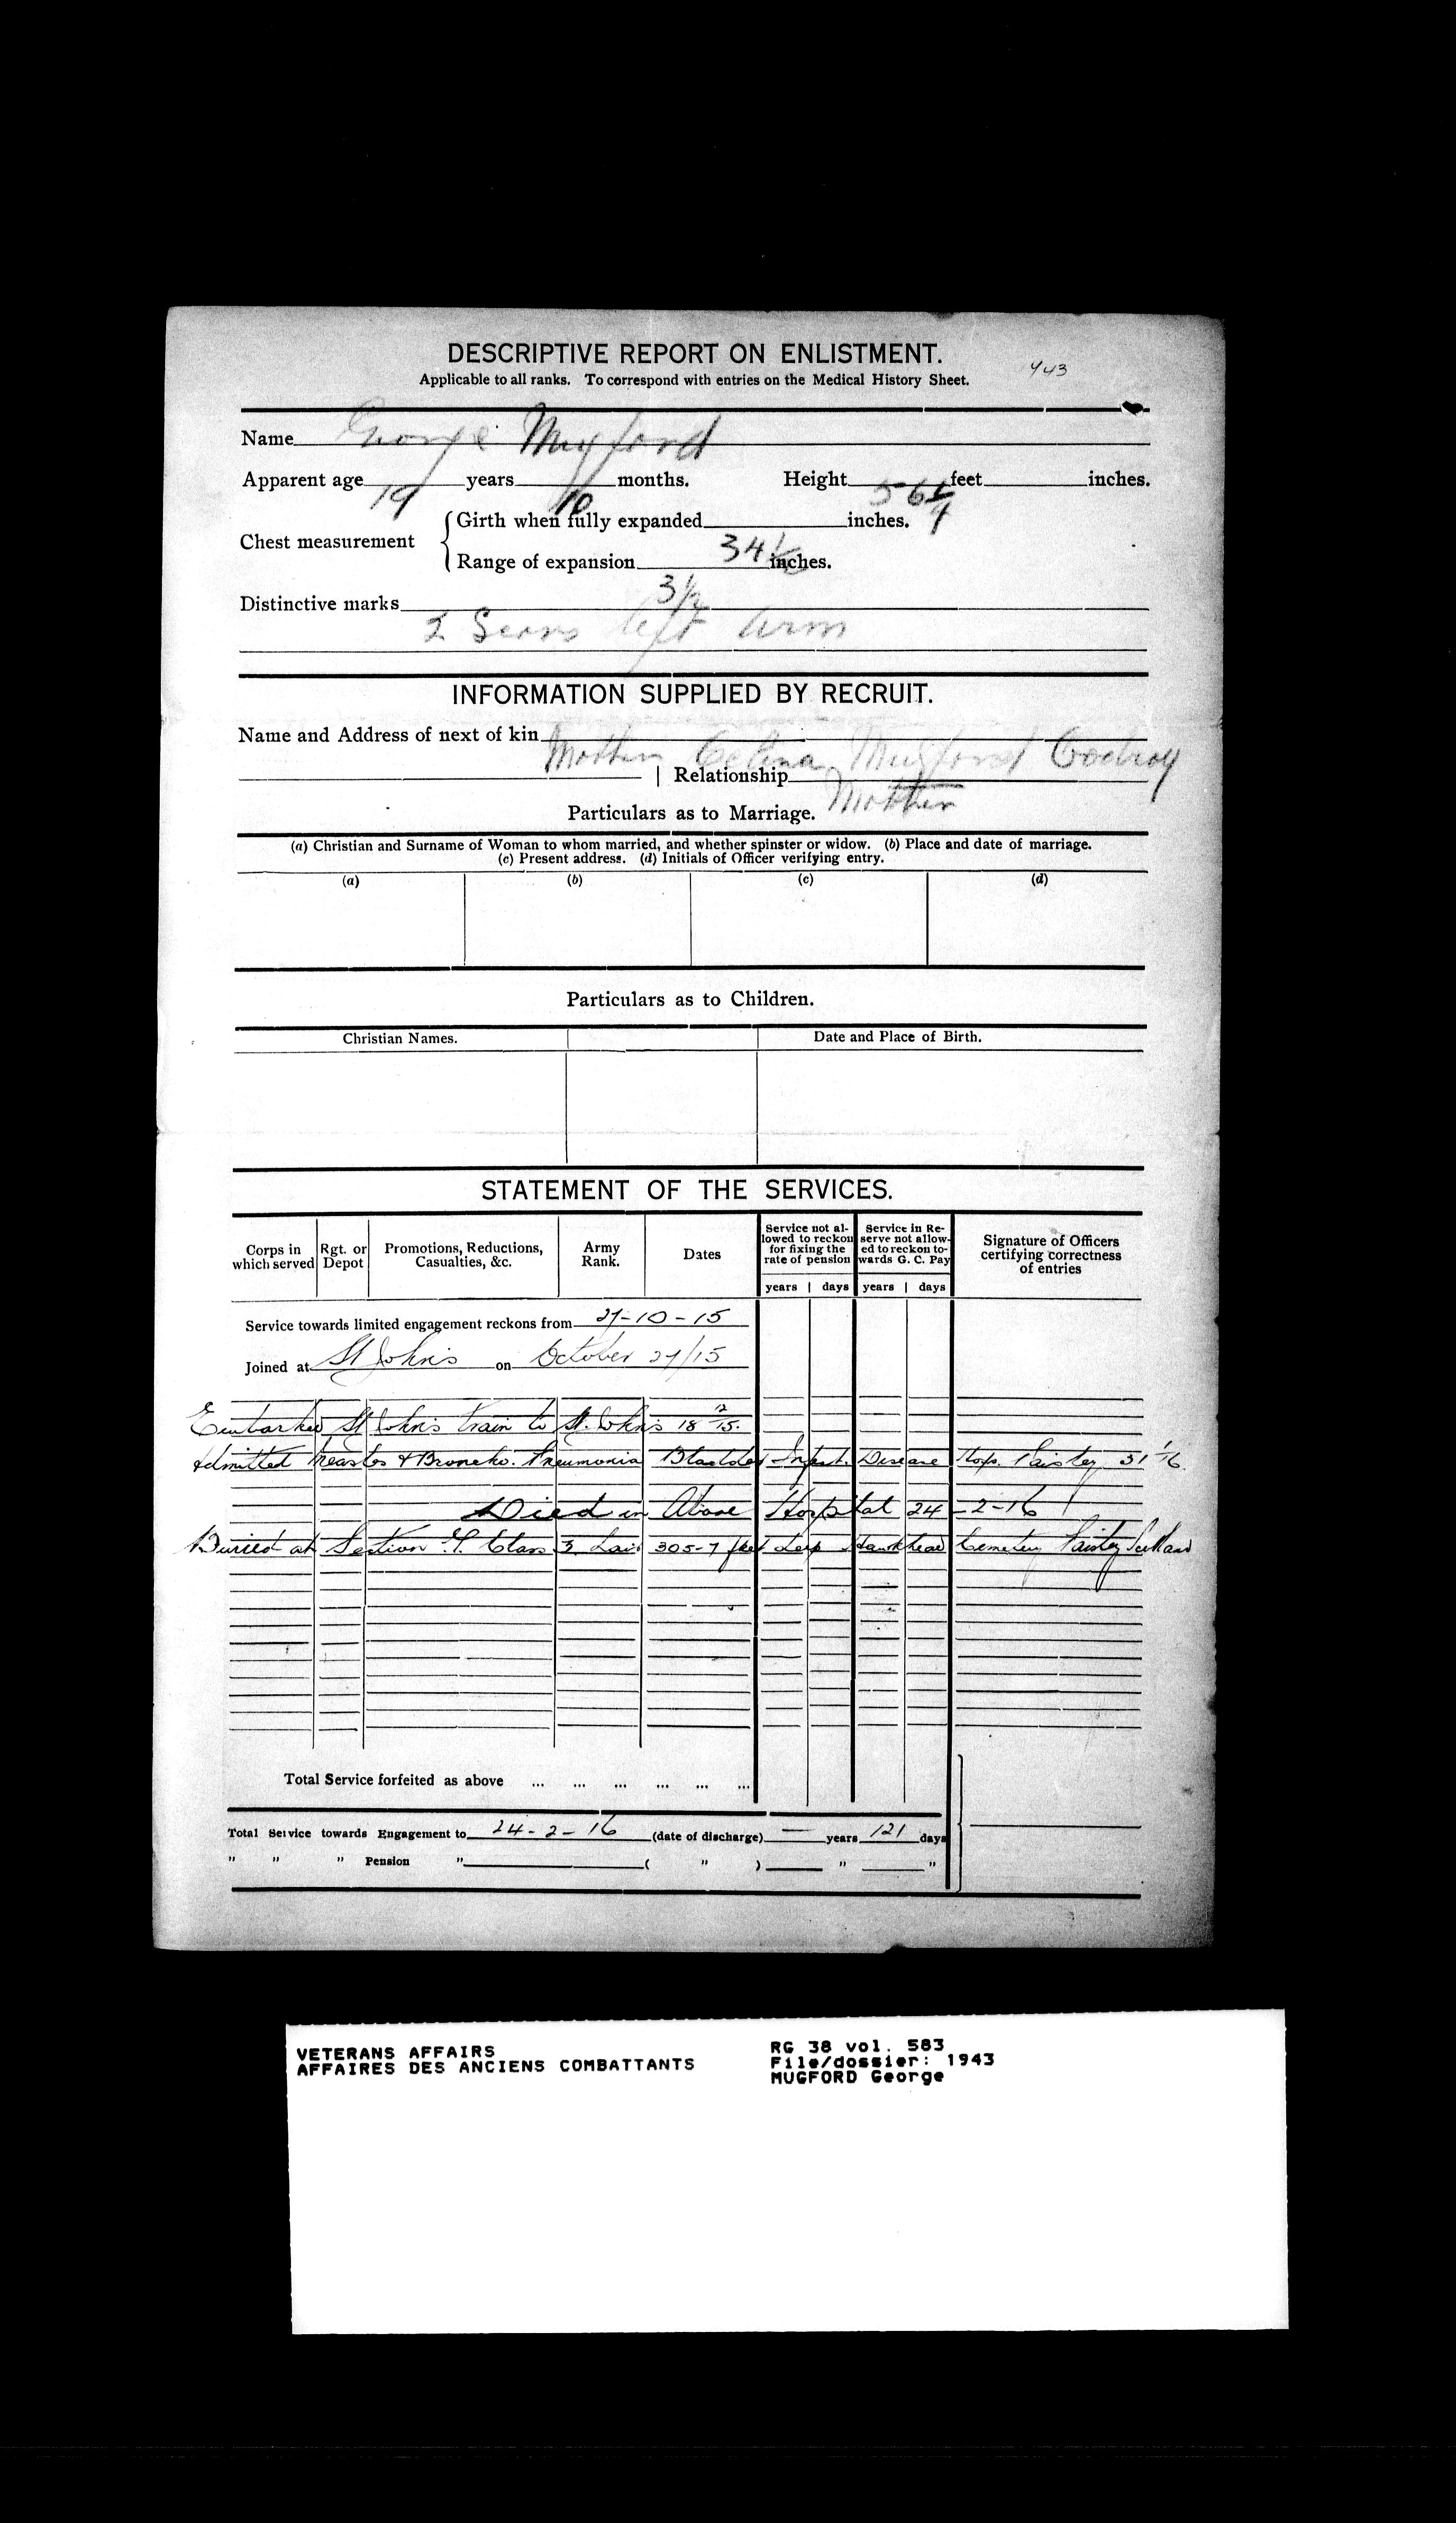 DESCRIPTIVE REPORT ON ENLISTMENT.
Applicable to all ranks. To correspond with entries on the Medical History Sheet.
943
Name George Mugford
Apparent age 19 years 10 months. Height 5 feet 6 1/4 inches.
Chest measurement
Girth when fully expanded 34 1/2 inches.
Range of expansion 3 1/2 inches.
Distinctive marks
2 Scars left arm
INFORMATION SUPPLIED BY RECRUIT.
Name and Address of next of kin Mother Celina Mugford Codroy
| Relationship Mother
Particulars as to Marriage.
(a) Christian and Surname of Woman to whom married, and whether spinster or widow. (b) Place and date of marriage.
(c) Present address. (d) Initials of Officer verifying entry.
(a) (b) (c) (d)
Particulars as to Children.
Christian Names. Date and Place of Birth.
STATEMENT OF THE SERVICES.
Corps in which served
Rgt. or Depot
Promotions, Reductions, Casualties, &c.
Army Rank.
Dates
Service not allowed to reckon for fixing the rate of pension
Service in Reserve not allowed to reckon towards G. C. Pay
Signature of Officers certifying correctness of entries
years | days years | days
Service towards limited engagement reckons from 27-10-15
Joined at St John's on October 27/15
Embarked St John's train to St. John's 18 12/15.
Admitted Measles & Broncho. Pneumonia Infect. Disease Hosp. Paisley 31 1/16.
Died in Above Hospital 24-2-16
Buried at Section G. Class 3 Lair 305-7 feet deep Hawkhead Cemetery Paisley Scotland
Total Service forfeited as above ... ... ... ... ... ...
Total Service towards Engagement to 24-2-16 (date of discharge) — years 121 days
" " " Pension " ( " ) " "
VETERANS AFFAIRS
AFFAIRES DES ANCIENS COMBATTANTS
RG 38 vol. 583
File/dossier: 1943
MUGFORD George